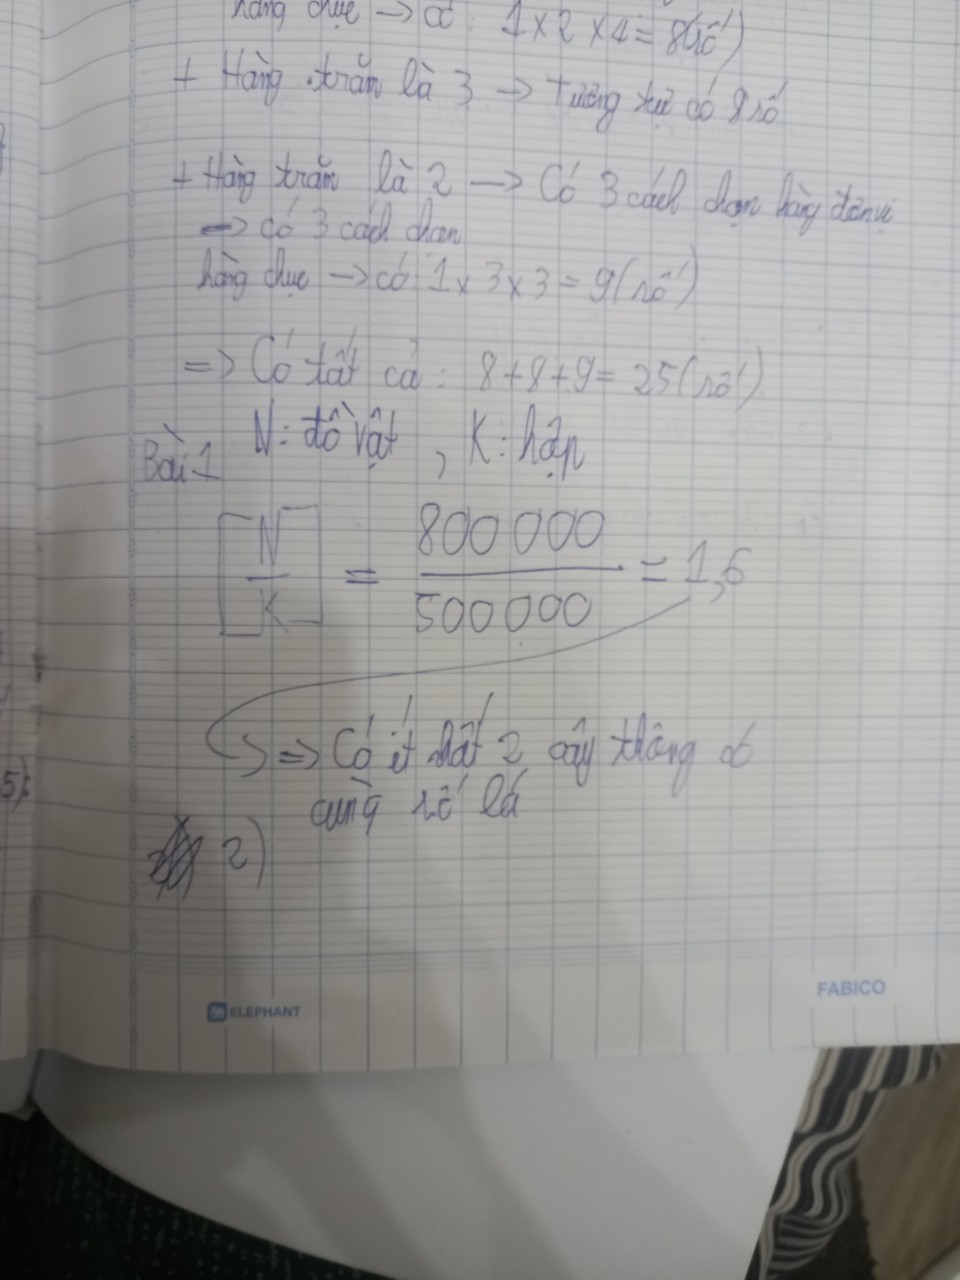 hàng chục → có: 1 x 2 x 4 = 8 (số)
+ Hàng trăm là 3 → Tương tự có 8 số
+ Hàng trăm là 2 → Có 3 cách chọn hàng đơn vị
→ có 3 cách chọn
hàng chục → có: 1 x 3 x 3 = 9 (số)
=> Có tất cả: 8 + 8 + 9 = 25 (số)
Bài 1 N: đồ vật, K: hộp
[N/K] = 800 000/500 000 = 1,6
=> Có ít nhất 2 cây thông có
cùng số lá
2)
5):
ELEPHANT
FABICO